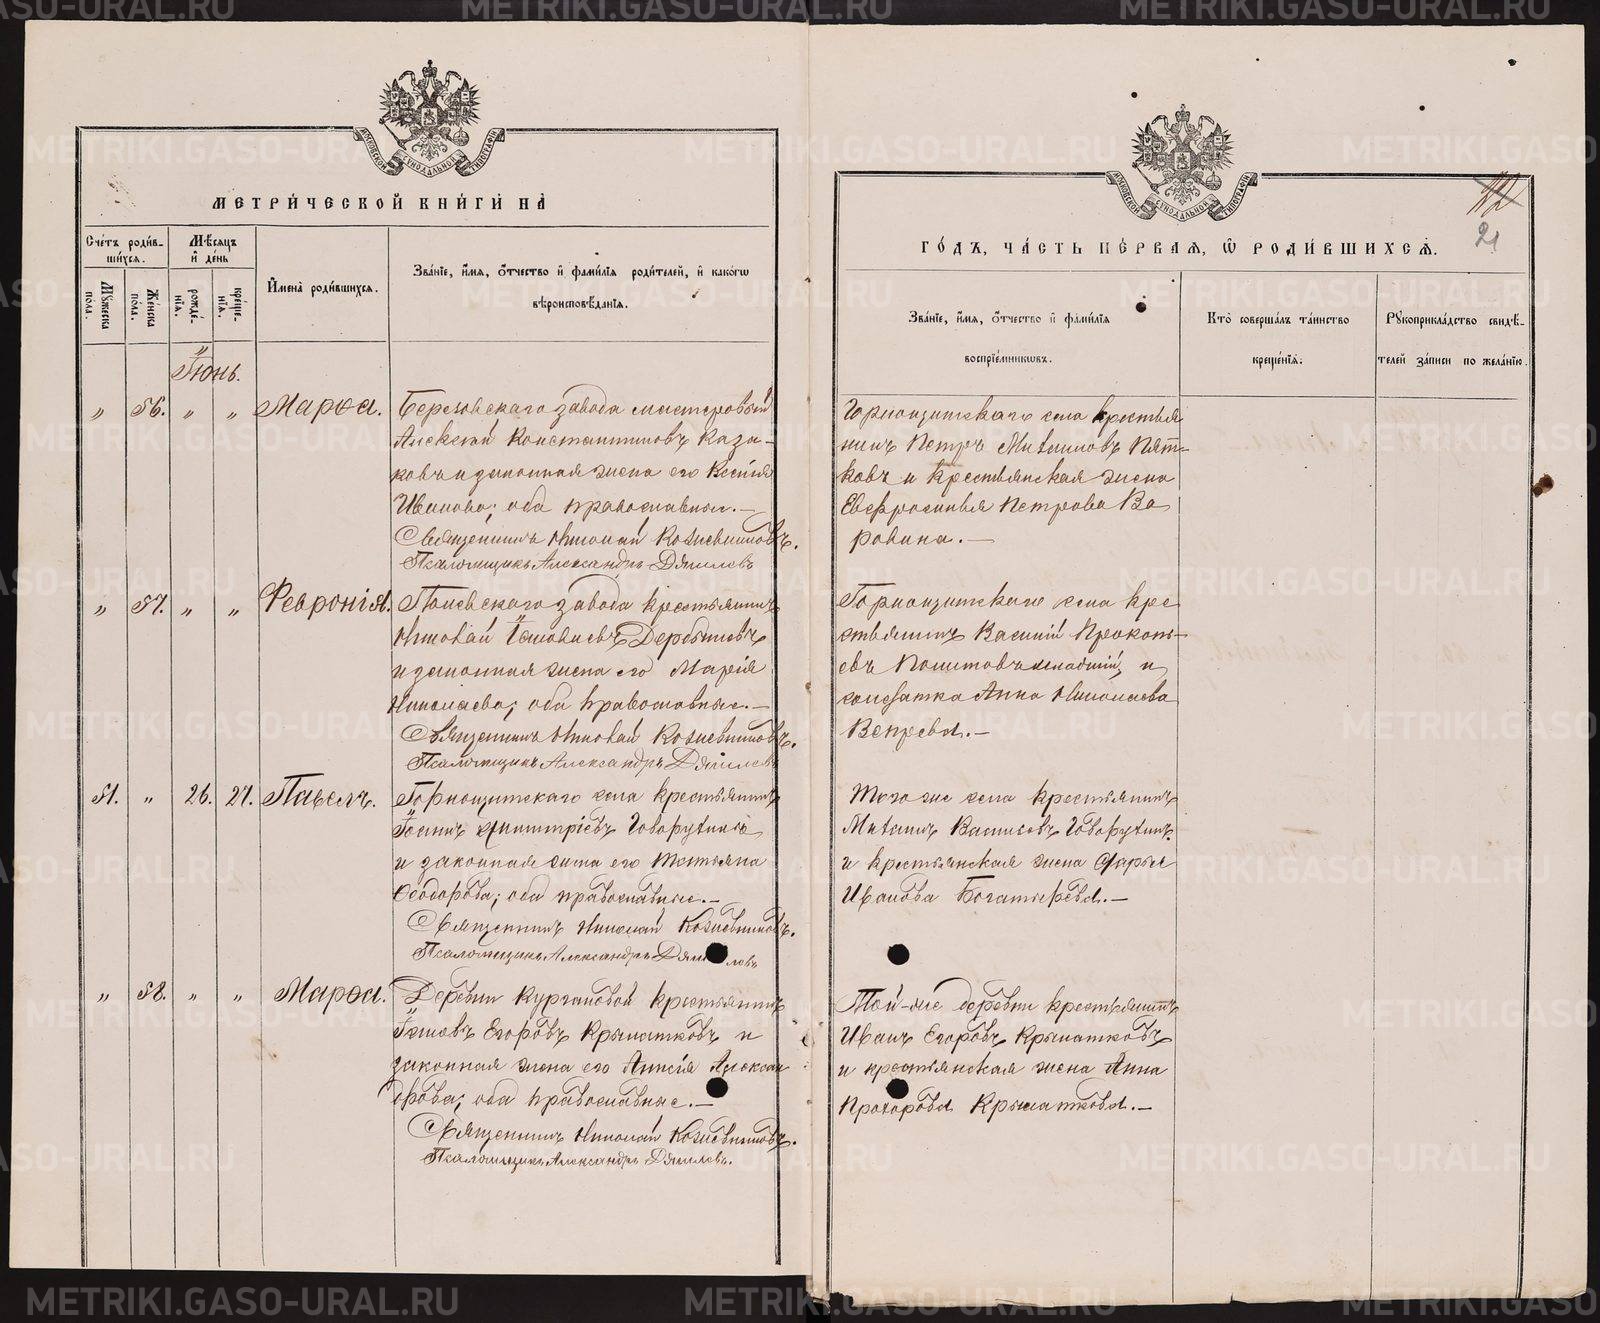 МЕТРИ́ЧЕСКОЙ КНИ́ГИ НА̀
Сче́тъ роди́в-
ши́хся.
Мѣ́сяцъ
и҆ де́нь
И҆мена̀ роди́вшихся.
Зва́нїе, и҆́мя, ѻ҆́тчество и҆ фами́лїя роди́телей, и҆ како́гѡ
вѣроисповѣ́данїя.
Мꙋ́жеска
по́ла.
Же́нска
по́ла.
рожде́-
нїя.
креще́-
нїя.
Іюнь.
„ 56. „ „ Марѳа. Березовскаго завода мастеровый
Алексѣй Константиновъ Каза-
ковъ и законная жена его Ксенія
Иванова; оба православные.—
Священникъ Николай Кожевниковъ.
Псаломщикъ Александръ Дягилевъ
„ 57. „ „ Февронія. завода крестьянинъ
Николай Іаковлевъ
и законная жена его Марія
Николаева; оба православные.—
Священникъ Николай Кожевниковъ.
Псаломщикъ Александръ Дягилевъ
51. „ 26. 27. Павелъ. Горнощитскаго села крестьянинъ
Іоаннъ Димитріевъ Говорухинъ
и законная жена его Татьяна
Ѳеодорова; оба православные.—
Священникъ Николай Кожевниковъ.
Псаломщикъ Александръ Дягилевъ
„ 58. „ „ Марѳа. Деревни Кургановой крестьянинъ
Іаковъ Егоровъ Крылатковъ и
законная жена его Анисія Алексан
дрова; оба православные.—
Священникъ Николай Кожевниковъ.
Псаломщикъ Александръ Дягилевъ.
21
ГО́ДЪ, ЧА́СТЬ ПЕ́РВАЯ, Ѡ҆ РОДИ́ВШИХСЯ.
Зва́нїе, и҆́мя, ѻ҆́тчество и҆ фами́лїя
воспрїе́мникѡвъ.
Кто̀ соверша́лъ та́инство
креще́нїя:
Рꙋкоприкла́дство свидѣ́-
телей за́писи по жела́нїю.
Горнощитскаго села крестья
нинъ Петръ Михаиловъ Пят-
ковъ и крестьянская жена
Евфросинья Петрова Во
ронина.—
Горнощитскаго села кре
стьянинъ Василій Прокопь-
евъ младшій, и
солдатка Анна Николаева
Вепрева.—
Того же села крестьянинъ
Михаилъ Васильевъ Говорухинъ
и крестьянская жена Дарья
Иванова Богатырева.—
Той-же деревни крестьянинъ
Иванъ Егоровъ Крылатковъ
и крестьянская жена Анна
Прохорова Крылаткова.—
METRIKI.GASO-URAL.RU